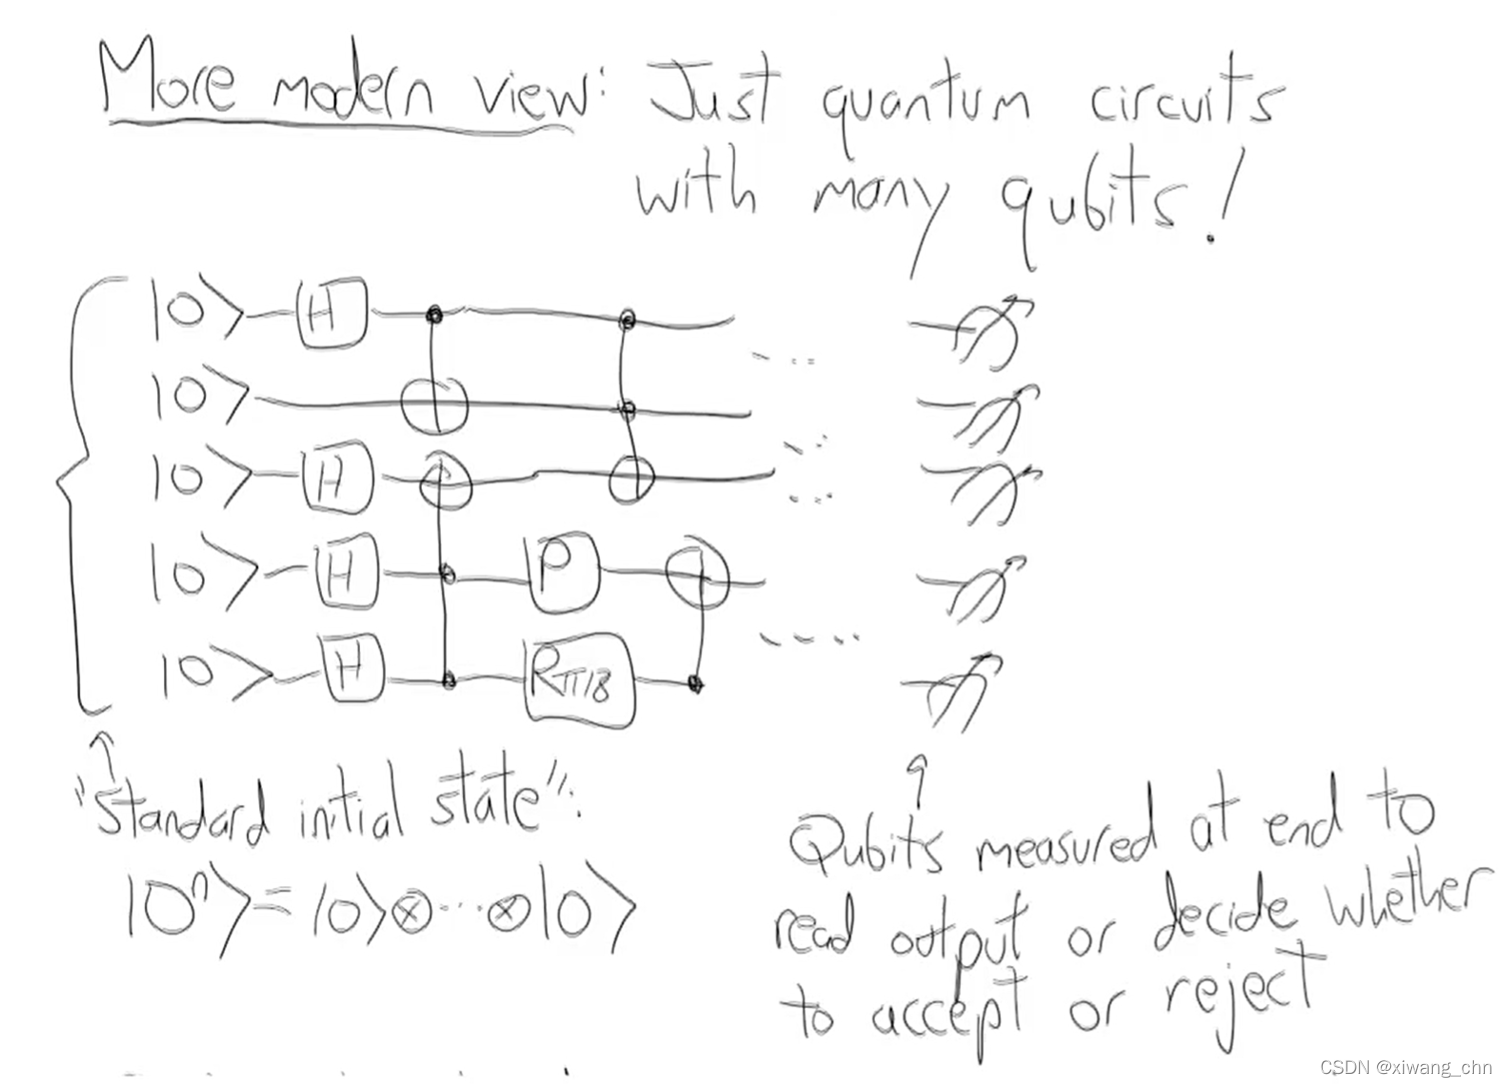 More modern view: Just quantum circuits
with many qubits!
|0> H
|0>
|0> H
|0> H P
|0> H Rπ/8
"standard initial state":
|0ⁿ> = |0>⊗···⊗|0>
Qubits measured at end to
read output or decide whether
to accept or reject
CSDN @xiwang_chn